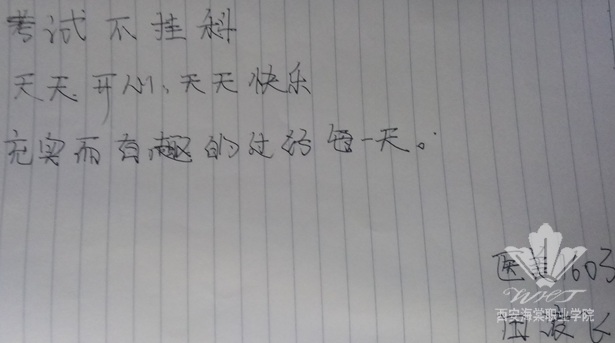 考试不挂科
天天开心、天天快乐
充实而有趣的过好每一天。
医美1603
西安海棠职业学院